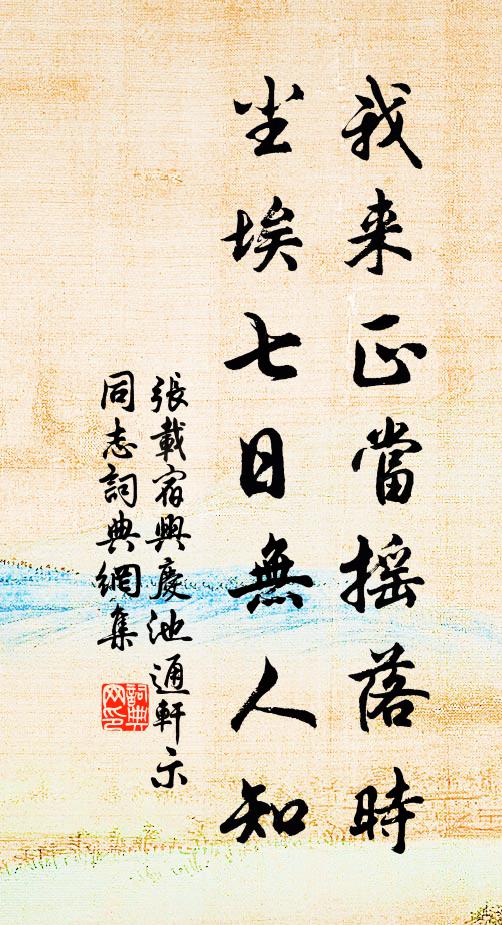 我来正當摇落時
尘埃七日無人知
張載宿興慶池通軒示
同志詞典網集
詞典网印